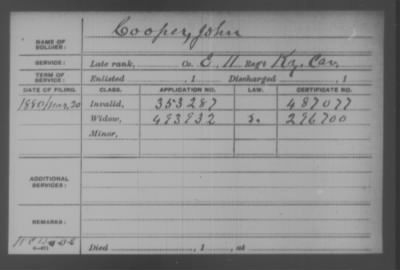 Cooper, John
NAME OF SOLDIER:
SERVICE: Late rank, Co. E, 11 Reg't Ky. Cav.
TERM OF SERVICE: Enlisted , 1 Discharged , 1
DATE OF FILING. CLASS. APPLICATION NO. LAW. CERTIFICATE NO.
1880 20 Invalid, 353287 487077
Widow, 493932 296700
Minor,
ADDITIONAL SERVICES:
REMARKS:
Died , 1 , at